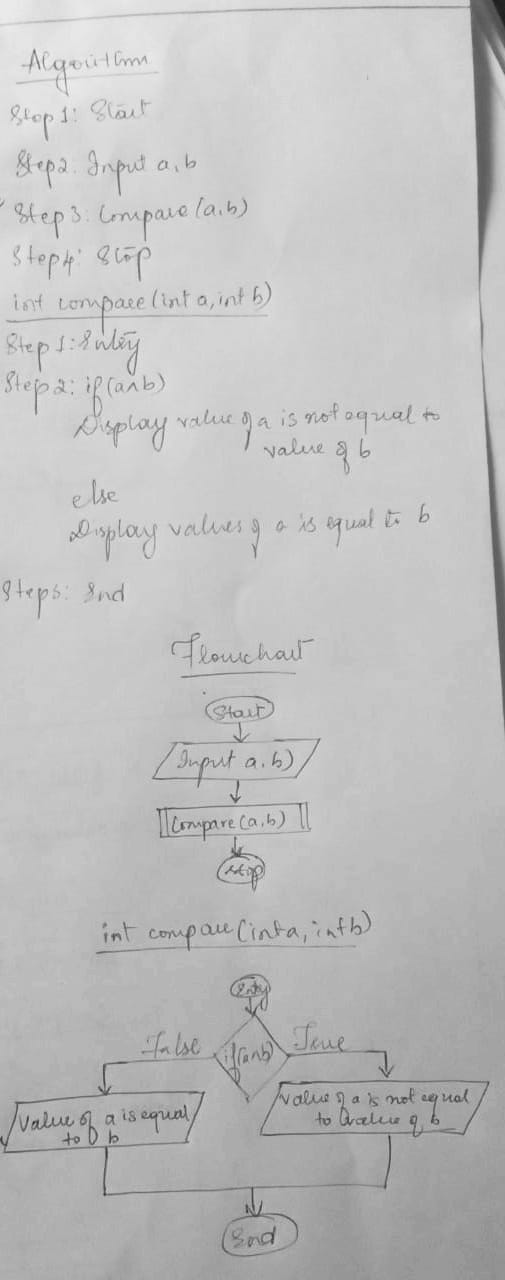 Algorithm
Step 1: Start
Step2: Input a,b
Step 3: Compare(a,b)
Step4: Stop
int compare(int a, int b)
Step 1: Entry
Step 2: if(a^b)
Display value of a is not equal to
value of b
else
Display values of a is equal to b
Step3: End
Flowchart
Start
Input a,b)
Compare(a,b)
Stop
int compare(int a, int b)
Entry
False if(a^b) True
Value of a is equal
to b
Value of a is not equal
to value of b
End